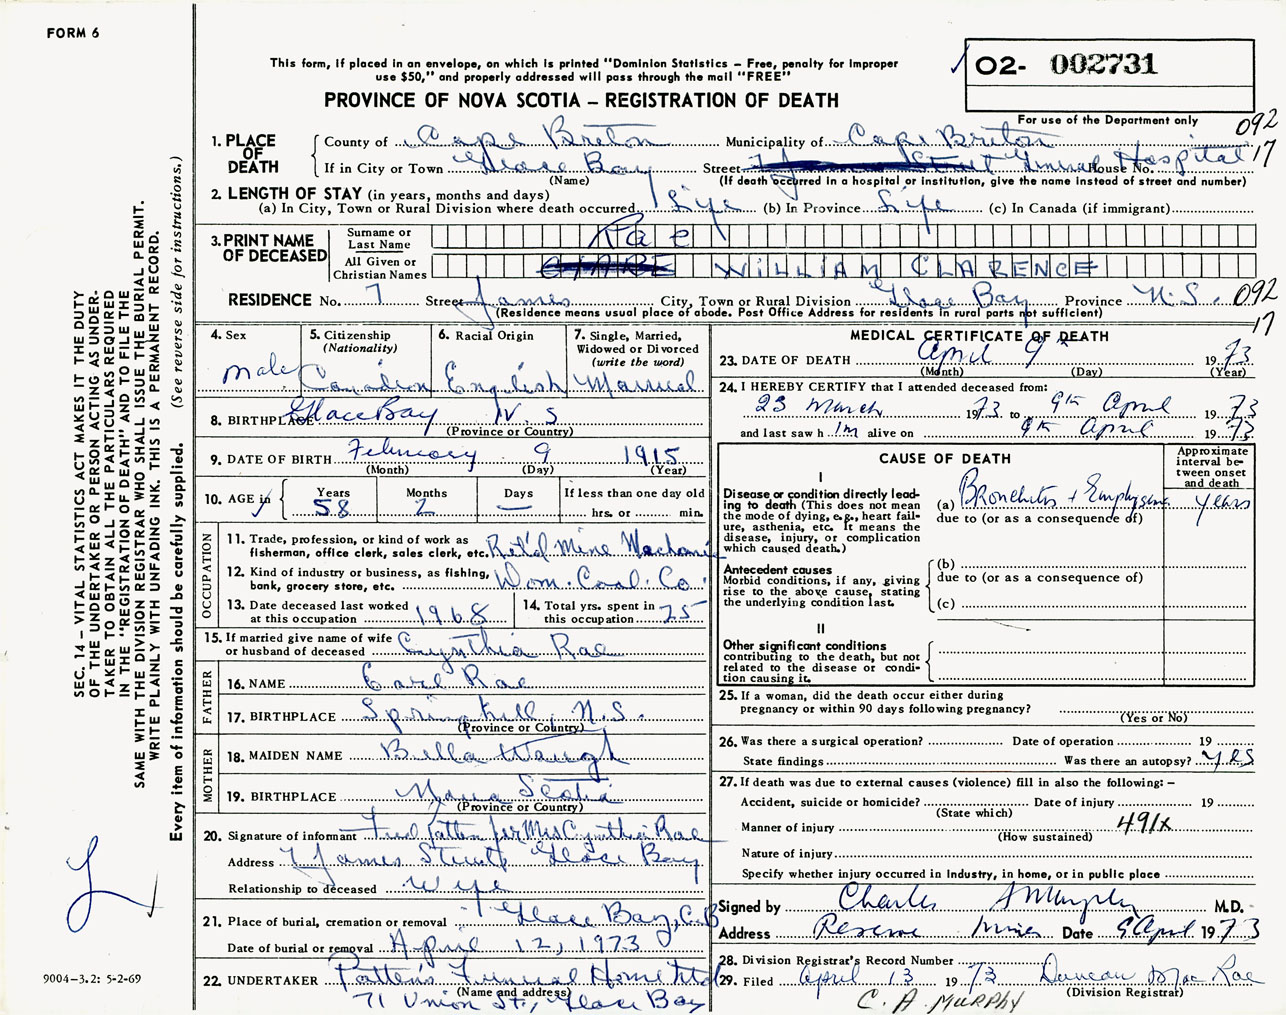 FORM 6
This form, if placed in an envelope, on which is printed "Dominion Statistics – Free, penalty for improper
use $50," and properly addressed will pass through the mail "FREE"
PROVINCE OF NOVA SCOTIA – REGISTRATION OF DEATH
02- 002731
For use of the Department only
092
17
1. PLACE OF DEATH
County of Cape Breton Municipality of Cape Breton
If in City or Town Glace Bay Street General Hospital House No.
(Name) (If death occurred in a hospital or institution, give the name instead of street and number)
2. LENGTH OF STAY (in years, months and days)
(a) In City, Town or Rural Division where death occurred Life (b) In Province Life (c) In Canada (if immigrant)
3. PRINT NAME OF DECEASED
Surname or Last Name Rae
All Given or Christian Names WILLIAM CLARENCE
RESIDENCE No. 7 Street James City, Town or Rural Division Glace Bay Province N.S. 092
(Residence means usual place of abode. Post Office Address for residents in rural parts not sufficient)
17
4. Sex
male
5. Citizenship
(Nationality)
Canadian
6. Racial Origin
English
7. Single, Married,
Widowed or Divorced
(write the word)
Married
8. BIRTHPLACE Glace Bay N.S
(Province or Country)
9. DATE OF BIRTH February 9 1915
(Month) (Day) (Year)
10. AGE in
Years Months Days If less than one day old
58 2 — hrs. or min.
OCCUPATION
11. Trade, profession, or kind of work as
fisherman, office clerk, sales clerk, etc. Ret'd Mine Mechanic
12. Kind of industry or business, as fishing,
bank, grocery store, etc. Dom. Coal. Co.
13. Date deceased last worked
at this occupation 1968
14. Total yrs. spent in
this occupation 25
15. If married give name of wife
or husband of deceased Cynthia Rae
FATHER
16. NAME Earl Rae
17. BIRTHPLACE Springhill, N.S.
(Province or Country)
MOTHER
18. MAIDEN NAME Bella Waugh
19. BIRTHPLACE Nova Scotia
(Province or Country)
20. Signature of informant Fred Patten per Mrs Cynthia Rae
Address 7 James Street Glace Bay
Relationship to deceased Wife
21. Place of burial, cremation or removal Glace Bay, C.B
Date of burial or removal April 12, 1973
22. UNDERTAKER Patten's Funeral Home Ltd
(Name and address)
71 Union St., Glace Bay
MEDICAL CERTIFICATE OF DEATH
23. DATE OF DEATH April 9 1973
(Month) (Day) (Year)
24. I HEREBY CERTIFY that I attended deceased from:
23 March 1973 to 9th April 1973
and last saw h im alive on 9th April 1973
CAUSE OF DEATH
Approximate
interval be-
tween onset
and death
I
Disease or condition directly lead-
ing to death (This does not mean
the mode of dying, e.g., heart fail-
ure, asthenia, etc. It means the
disease, injury, or complication
which caused death.)
(a) Bronchitis + Emphysema years
due to (or as a consequence of)
Antecedent causes
Morbid conditions, if any, giving
rise to the above cause, stating
the underlying condition last.
(b)
due to (or as a consequence of)
(c)
II
Other significant conditions
contributing to the death, but not
related to the disease or condi-
tion causing it.
25. If a woman, did the death occur either during
pregnancy or within 90 days following pregnancy?
(Yes or No)
26. Was there a surgical operation? Date of operation 19
State findings Was there an autopsy? yes
27. If death was due to external causes (violence) fill in also the following: –
Accident, suicide or homicide? Date of injury 19
(State which)
Manner of injury 491X
(How sustained)
Nature of injury
Specify whether injury occurred in industry, in home, or in public place
Signed by Charles A Murphy M.D.
Address Reserve Mines Date 9 April 1973
28. Division Registrar's Record Number
29. Filed April 13 1973 Duncan MacRae
(Division Registrar)
C. A. MURPHY
SEC. 14 – VITAL STATISTICS ACT MAKES IT THE DUTY
OF THE UNDERTAKER OR PERSON ACTING AS UNDER-
TAKER TO OBTAIN ALL THE PARTICULARS REQUIRED
IN THE "REGISTRATION OF DEATH" AND TO FILE THE
SAME WITH THE DIVISION REGISTRAR WHO SHALL ISSUE THE BURIAL PERMIT.
WRITE PLAINLY WITH UNFADING INK. THIS IS A PERMANENT RECORD.
Every item of information should be carefully supplied. (See reverse side for instructions.)
9004–3.2: 5-2-69